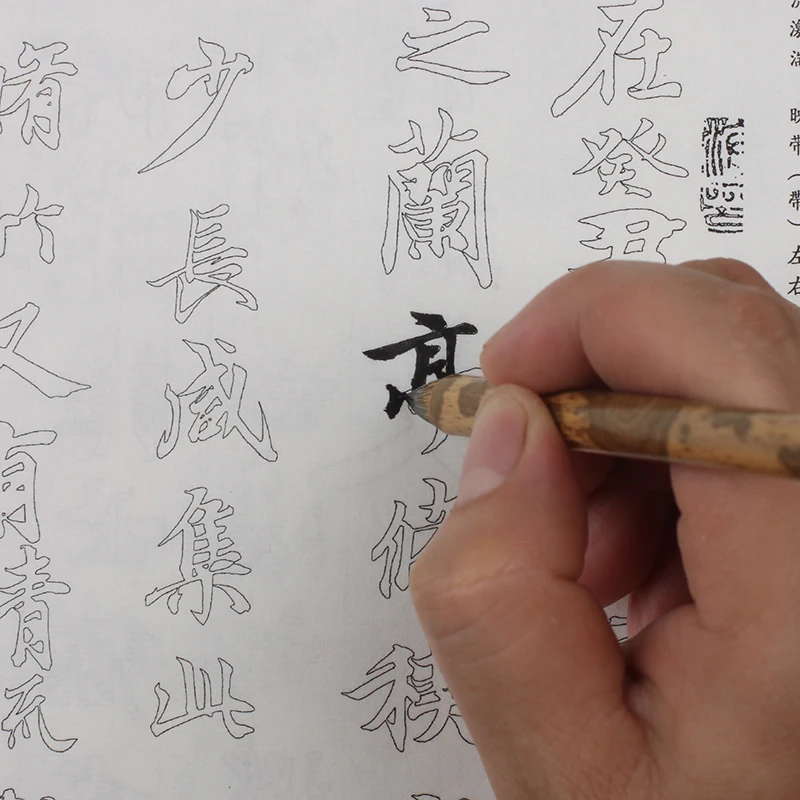 激湍　映带（帶）左右
在癸丑
之蘭亭脩稧
少長咸集此
脩竹又有清流